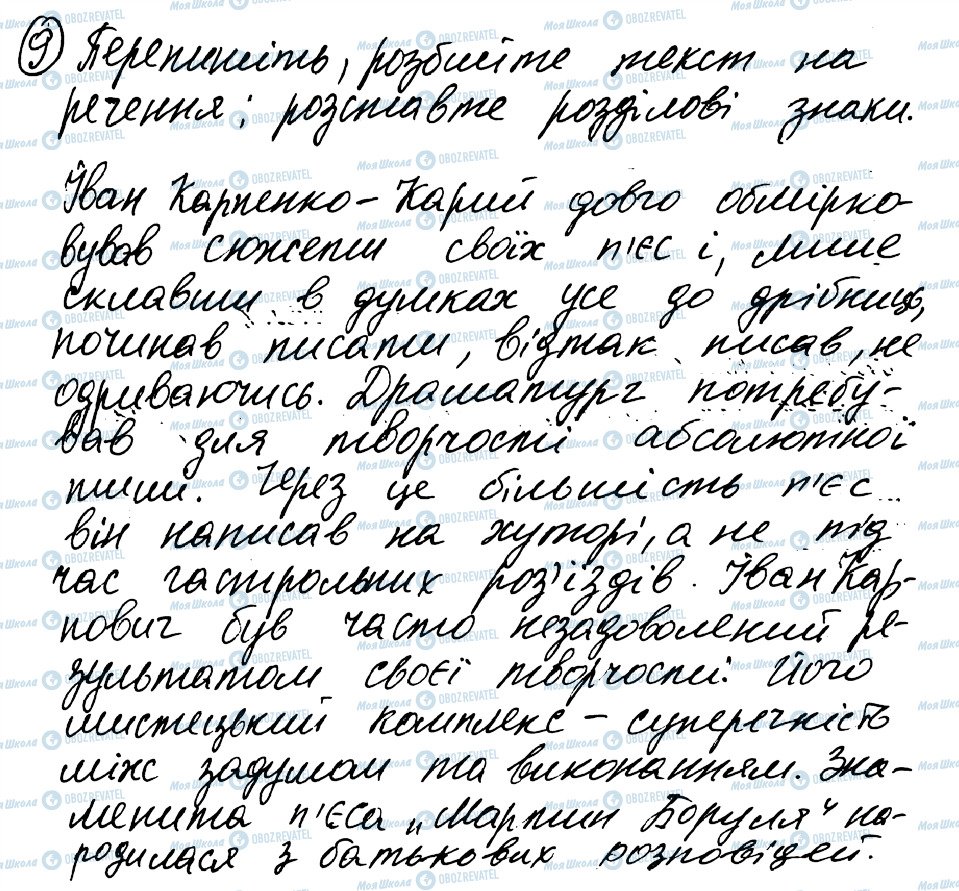 9 Перепишіть, розбийте текст на
речення; розставте розділові знаки.
Іван Карпенко-Карий довго обмірко-
вував сюжети своїх п'єс і, лише
склавши в думках усе до дрібниць,
починав писати, відтак писав, не
одриваючись. Драматург потребу-
вав для творчості абсолютної
тиши. Через це більшість п'єс
він написав на хуторі, а не під
час гастрольних роз'їздів. Іван Кар-
пович був часто незадоволений ре-
зультатом своєї творчості. Його
мистецький комплекс – суперечність
між задумом та виконанням. Зна-
менита п'єса „Мартин Боруля" на-
родилася з батькових розповідей.